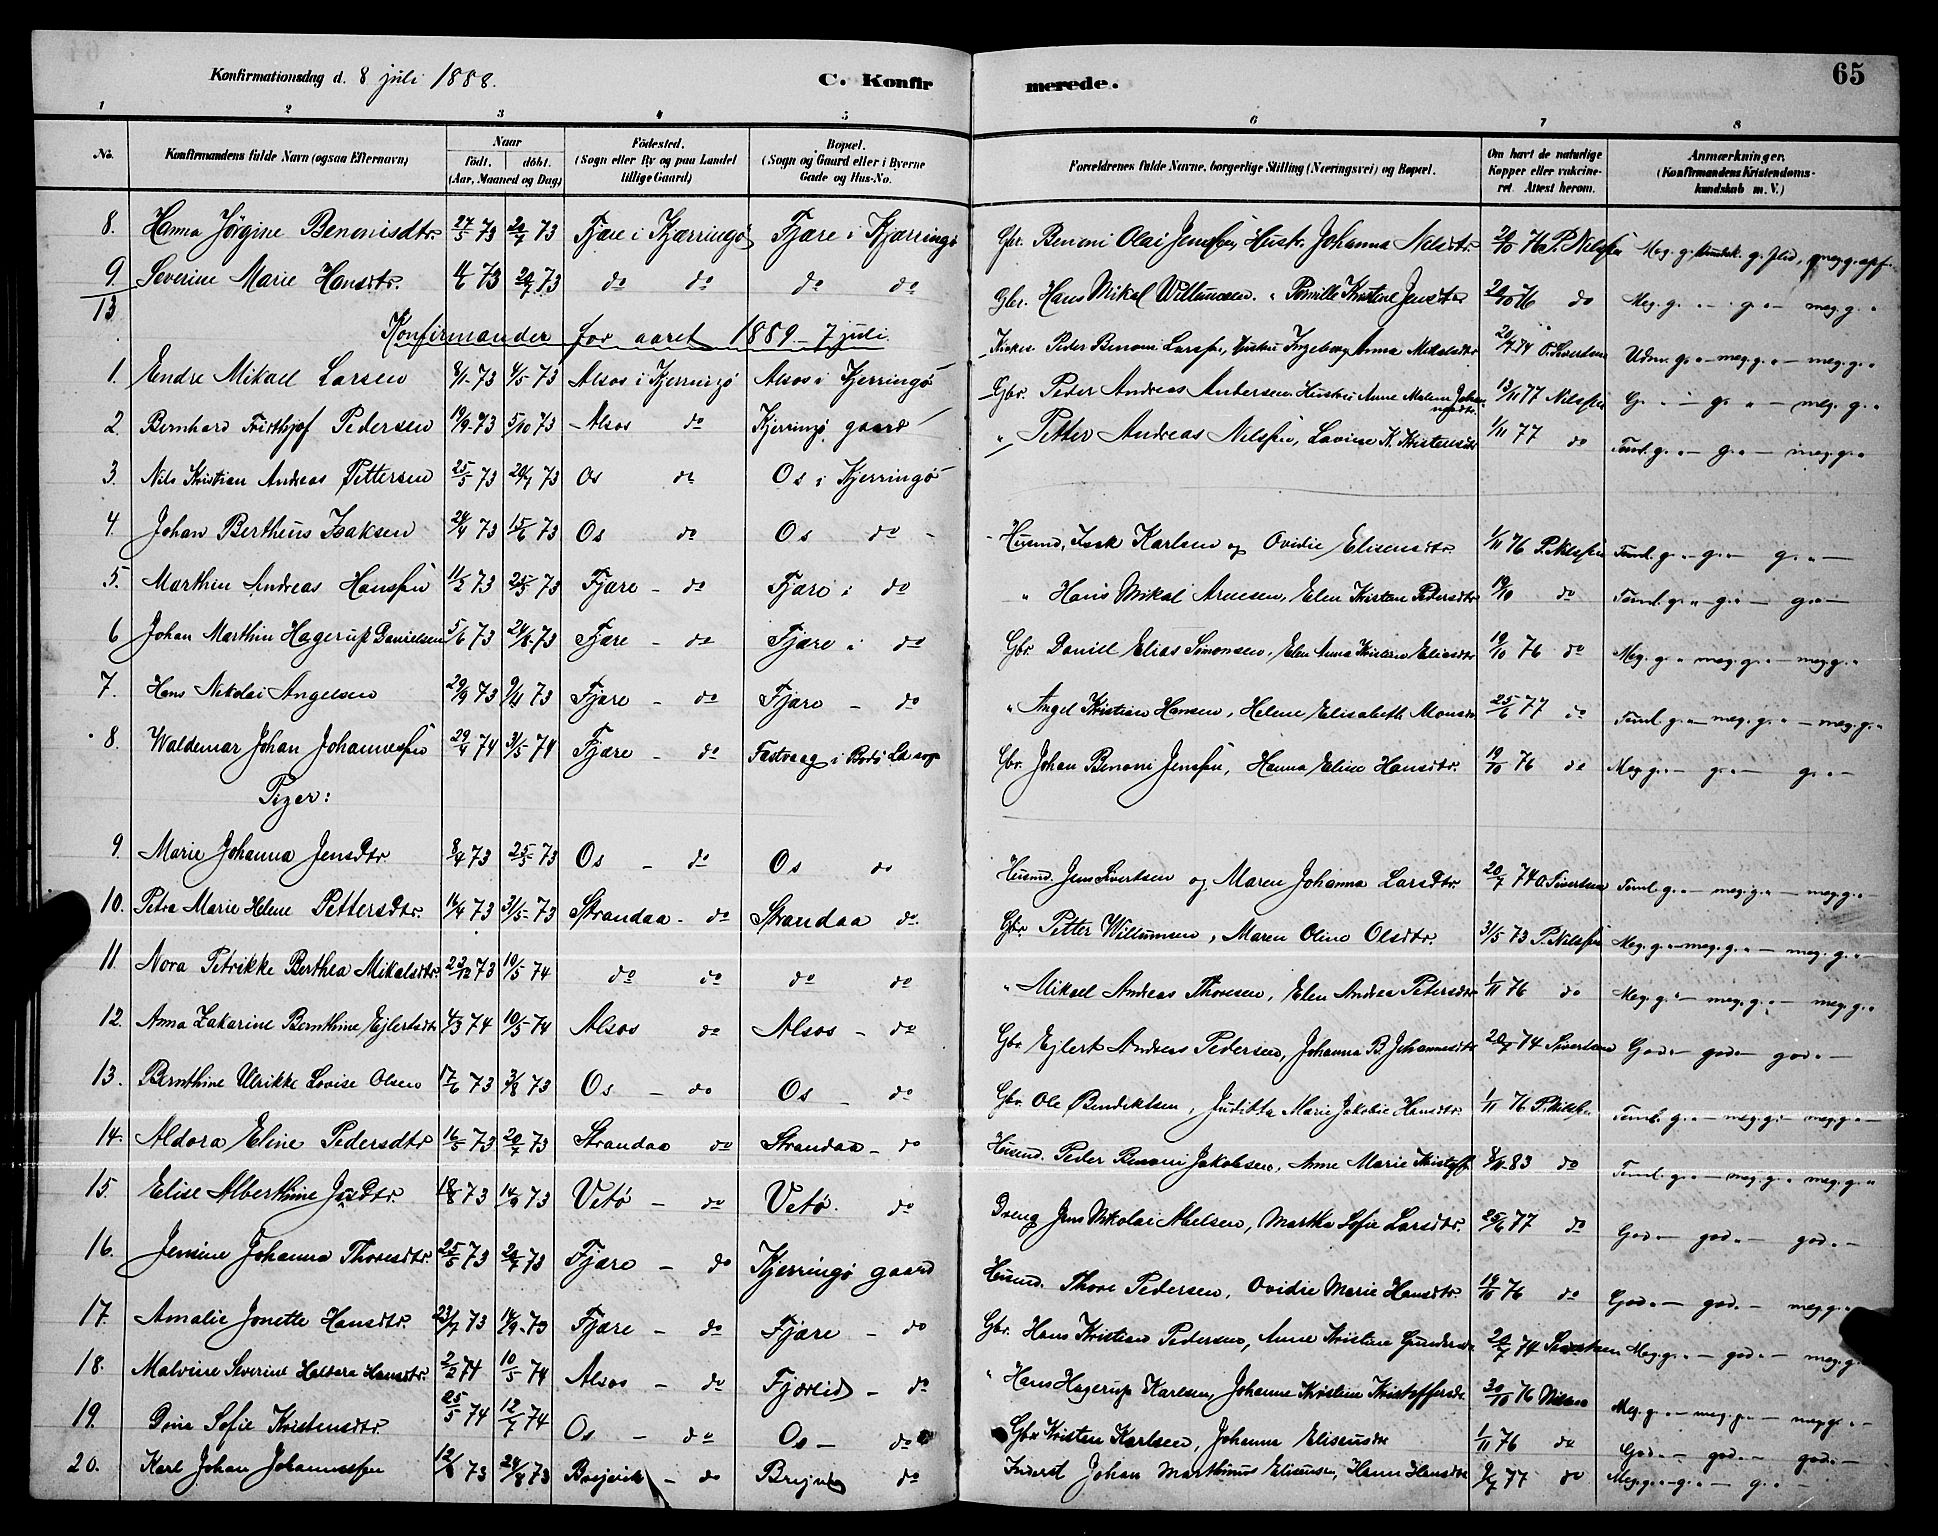 Konfirmationsdag d. 8 juli 1888. C. Konfir merede. 65
1 2 3 4 5 6 7 8
No. Konfirmandens fulde Navn (ogsaa Efternavn) Naar födt. döbt. (Aar, Maaned og Dag) Födested. (Sogn eller By og paa Landet tillige Gaard) Bopæl. (Sogn og Gaard eller i Byerne Gade og Hus-No. Forældrenes fulde Navne, borgerlige Stilling (Næringsvei) og Bopæl. Om havt de naturlige Kopper eller vakcineret. Attest herom. Anmærkninger. (Konfirmandens Kristendomskundskab m. V.)
8. Hanna Jörgine Benonisdtr. 27/5 73 20/7 73 Fjære i Kjærringö Fjære i Kjærringö Gbr. Benoni Olai Jensen, Hustr. Johanna Nilsdtr 20/10 76 P. Nilssen
9 Severine Marie Hansdtr. 4/6 73 20/7 73 do do do do Gbr. Hans Mikal Willumsen. " Pernille Kristine Jensdtr 20/10 76 do Meg. g. " - g. " - meg. g. "
13
Konfirmander for aaret 1889 - 7 juli
1. Endre Mikael Larsen 8/1-73 4/5-73 Alsos i Kjerringö Alsos i Kjerringö Peder Benoni Larsen, Hustru Ingeborg Anna Mikalsdtr 20/7 74 O. Sivertsen Udm. g. " - meg. g. " - meg. g. "
2. Bernhard Fridthjof Pedersen 19/9-73 5/10 73 - Alsos do Kjerringö gaard Gbr. Peder Andreas Andersen Hustru Anne Malene 13/11 77 Nilssen G. " - g. " - meg. g. "
3. Nils Kristian Andreas Pettersen 25/5 73 20/7 73 Os do Os i Kjerringö " Petter Andreas Nilssen, Lovise K. Kristensdtr 1/11 77 do Teml. g. " - g. " - meg. g. "
4. Johan Bertheus Isaksen 24/4 73 15/6 73 Os do Os do - Husmd. Isak Karlsen og Ovidie Elisensdtr. 1/11 76 P. Nilssen Teml. g. " - g. " - g. " -
5. Marthin Andreas Hanssen 11/2 73 25/5 73 Fjære - do Fjære i do " Hans Mikal Arnesen, Elen Kirsten Pedersdtr 19/10 do Teml. g. " - g. " - g. " -
6 Johan Marthin Hagerup Danielsen 5/6 73 24/8-73 Fjære - do Fjære i do Gbr. Daniel Elias Simonsen, Elen Anna Kristine Eliasdtr 19/10 76 do Meg. g. " meg. g. " - meg. g. "
7. Hans Nikolai Angelsen 29/9 73 9/11 73 Fjære - do Fjære - do " Angel Kristian Hansen, Helene Elisabeth Monsdr 25/6 77 do Teml. g. " - meg. g. " - meg. g. "
8. Waldemar Johan Johannessen 29/4 74 31/5 74 Fjære - do Fastvaag i Bodö Gbr. Johan Benoni Jenssen, Hanna Eline Hansdtr. 19/10 76 do Meg. g. " - g. " - g. " -
Piger:
9. Marie Johanna Jensdtr 8/4 73 25/5 73 Os - do Os do Husmd. Jens Sivertsen og Maren Johanna Larsdtr. 20/7 74 O Sivertsen Teml. g. " - meg. g. " - meg. g. " -
10. Petra Marie Helene Pettersdtr. 16/4 73 31/5-73 Strandaa - do Strandaa do. Gbr. Petter Willumsen, Maren Oline Olsdtr. 31/5 73 P. Nilssen Meg. g. " - meg. g. " - meg. g. " -
11. Nora Petrikke Berthea Mikalsdtr. 23/12 73 10/5 74 do do do do " Mikael Andreas Thoresen, Elen Andrea Petersdtr 1/11 76 do Meg. g. " - meg. g. " - meg. g. "
12. Anna Zakarine Bernthine Ejlertsdtr 4/3 74 10/5 74 Alsos do Alsos - do Gbr. Ejlert Andreas Pedersen, Johanna B. Johannesdtr 20/7 74 Sivertsen God " - god " - god " -
13. Bernthine Ulrikke Lovise Olsen 17/6 73 3/8 73 Os - do Os - do Gbr. Ole Bendiktsen, Juditta Marie Jakobie Hansdtr. 1/11 76 P. Nilssen Teml. g. " - meg. g. " - meg. g. " -
14. Aldora Eline Pedersdtr 16/5 73 20/7 73 Strandaa do Strandaa - do Husmd. Peder Benoni Jakobsen, Anne Marie 8/11-83 do Teml. g. " - meg. g. " meg. g. "
15. Elise Alberthine Jensdtr 18/8 73 14/9 73 Vetö - do Vetö. do Dreng Jens Nikolai Abelsen, Martha Sofie Larsdtr. 25/6 77 do God " - god " - god " -
16. Jensine Johanna Thoresdtr. 25/5 73 20/7 73 Fjære - do Kjerringö gaard Husmd. Thore Pedersen, Ovidie Marie Hansdtr 19/10 76 do God " - god " - meg. g. "
17. Amalie Jonette Hansdtr. 23/7 73 14/9-73 Fjære - do Fjære - do Gbr. Hans Kristian Pedersen, Anne Kristine 20/7 74 Sivertsen Meg. g. " - god " - meg. g.
18. Malvine Severine Hansdtr. 2/2 74 10/5 74 Alsos - do Fjærlid - do " Hans Hagerup Karlsen, Johanna Kristine Kristoffersdr. 30/10 76 Nilssen Meg. g. " - meg. g. " - meg. g. " -
19. Sofie Kristensdtr. 25/5 74 12/7 74 Os - do Os - do Gbr Kristen Karlsen, Johanna Elisensdtr 1/11 76 do God " - god " - god " -
20. Karl Johan Johannessen 12/6 73 24/8 73 - do do Inderst Johan Marthinus Elisensen, Hanna Hansdtr 77 do Meg. g. " - g. " - g. " -